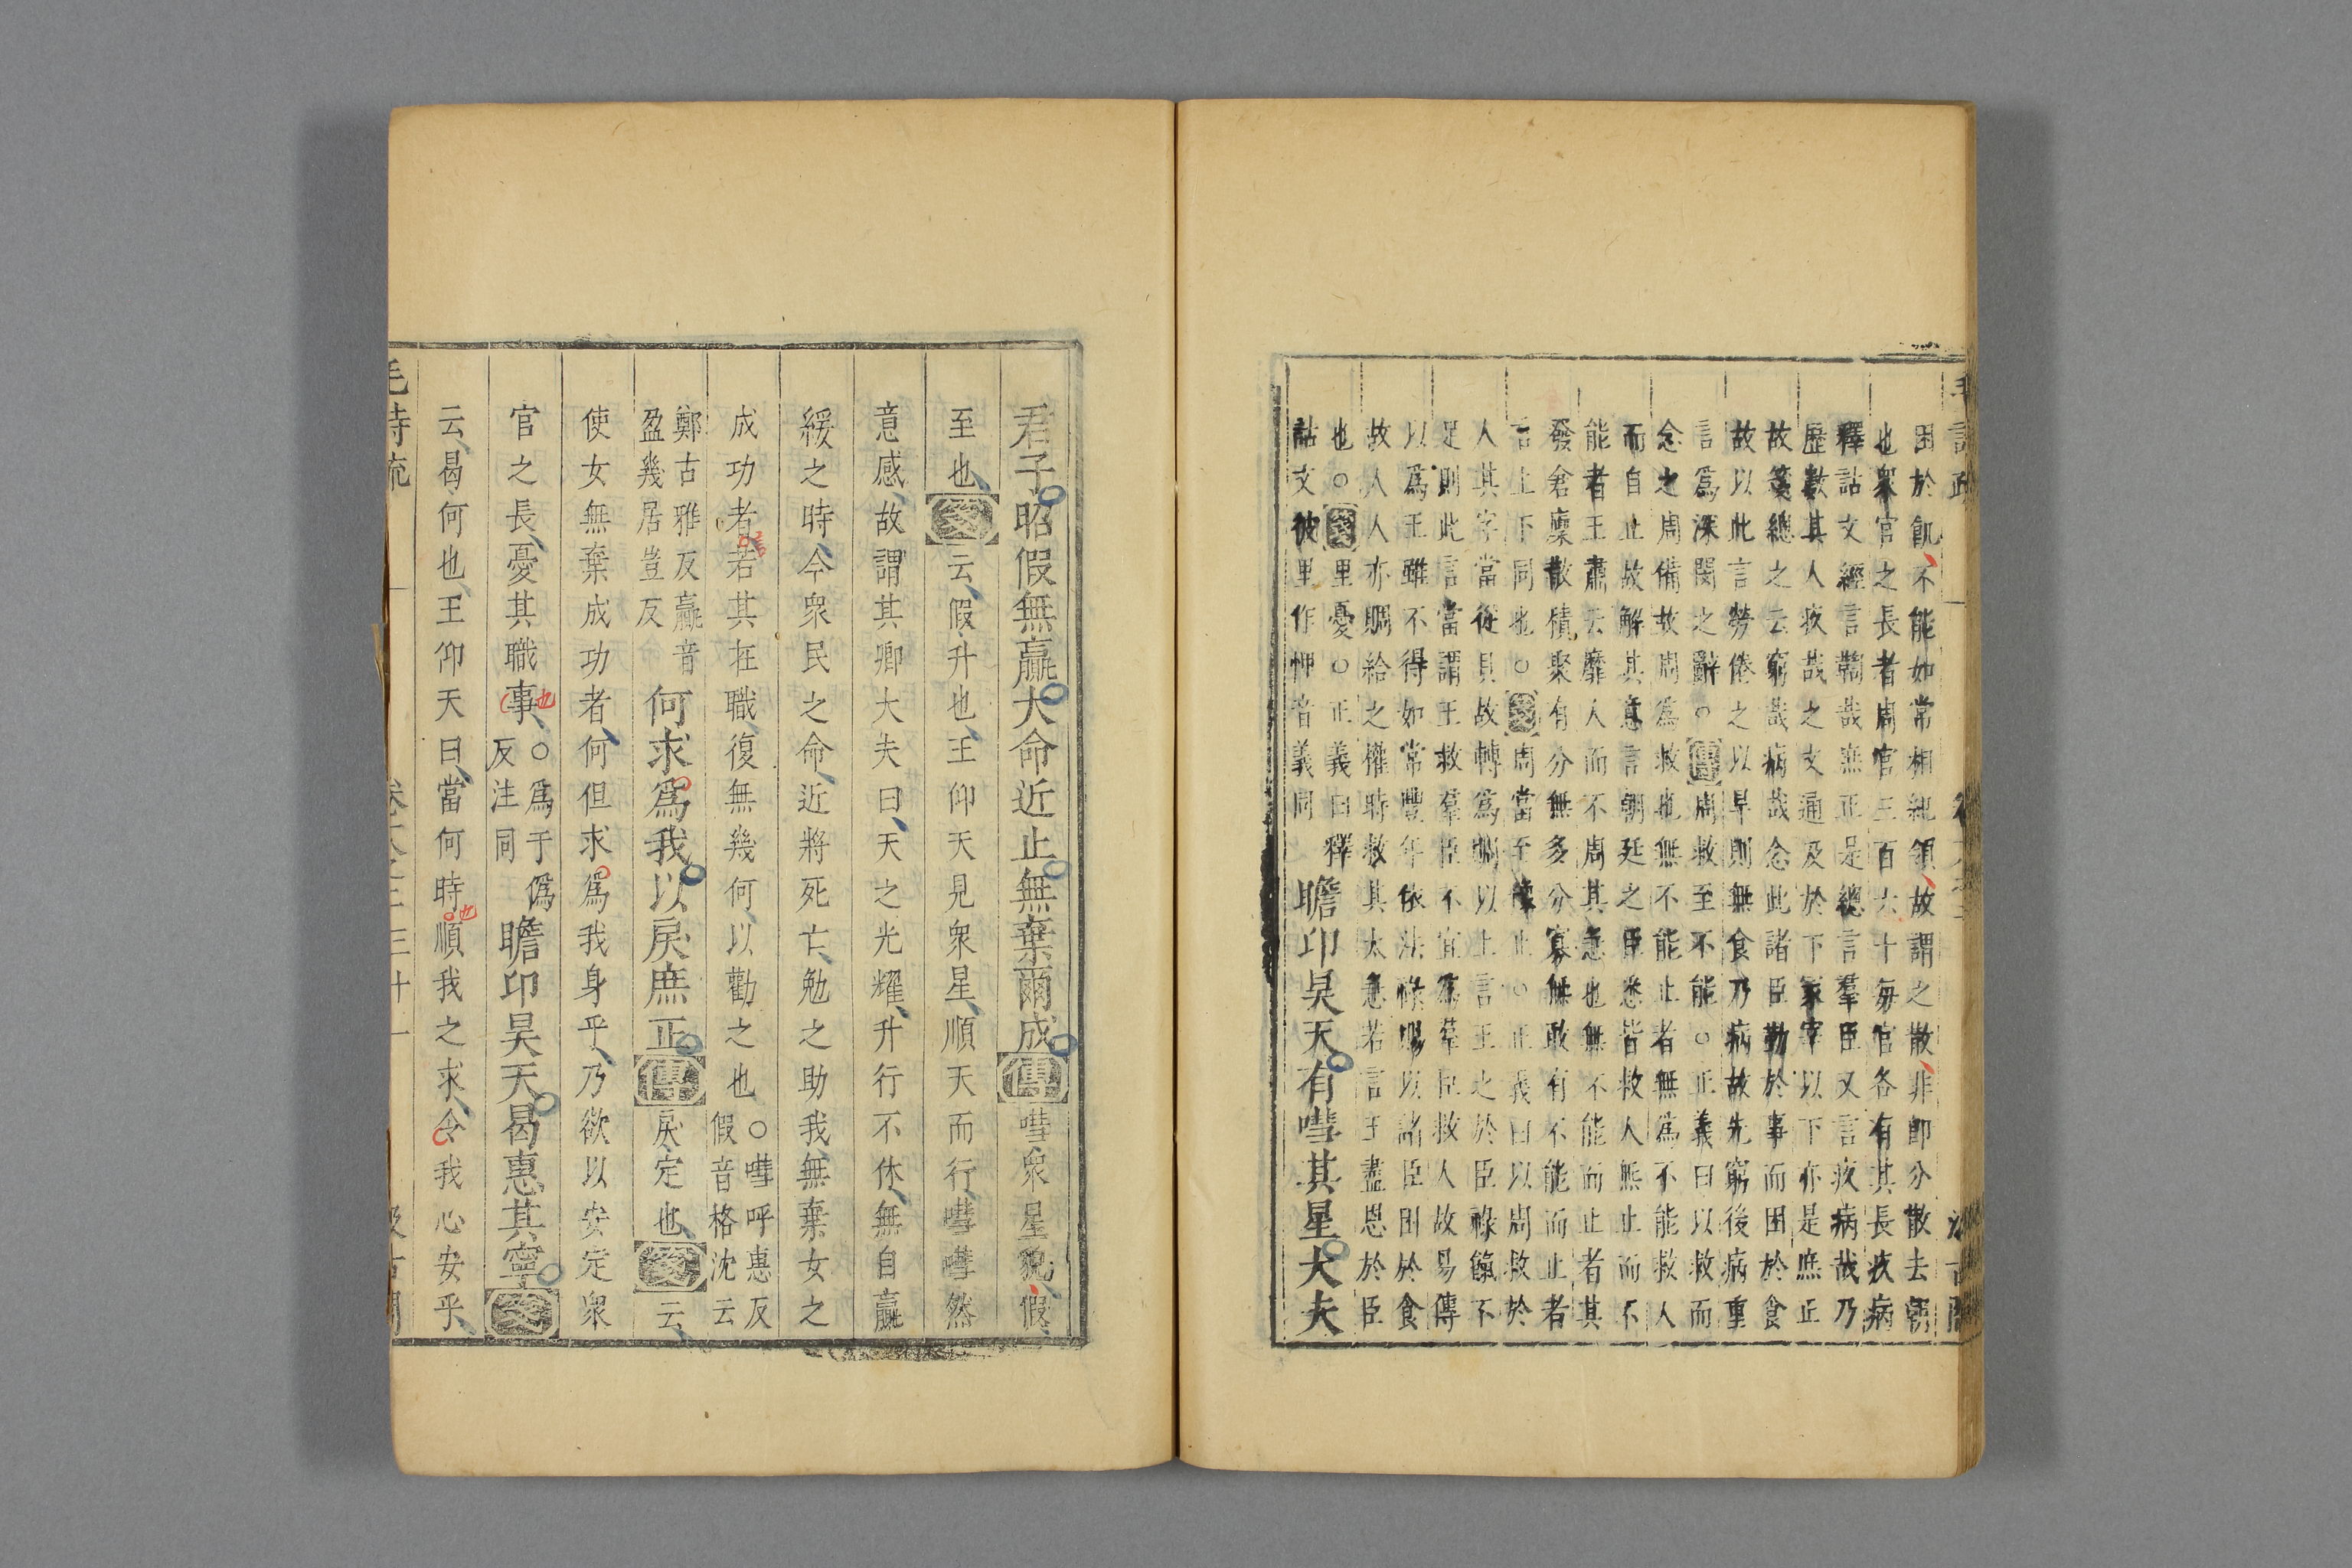 毛詩疏
困於飢不能如常相紀領故謂之散非即分散去朝
也衆官之長者周官三百六十每官各有其長疚病
釋詁文經言鞫哉庶正是總言羣臣又言疚病哉乃
歷數其人疚哉之文通及於下冢宰以下亦是庶正
故箋總之云窮哉病哉念此諸臣勤於事而困於食
故以此言勞倦之以旱則無食乃病故先窮後病重
言爲深閔之辭○傳周救至不能○正義曰以救而
念之周備故周爲救也無不能止者無爲不能救人
而自止故解其意言朝廷之臣悉皆救人無止而不
能者王肅云靡人而不周其急也無不能而止者其
發倉廩散積聚有分無多分寡無敢有不能而止者
言上下同也○箋周當至止○正義曰以周救於
人其字當從貝故轉爲賙以上言王之於臣祿餼不
足則此言當謂王救羣臣不宜爲羣臣救人故易傳
以爲王雖不得如常豐年依法祿賜以諸臣困於食
故人人亦賙給之權時救其大急若言王盡恩於臣
也○箋里憂○正義曰釋
詁文彼里作悝音義同
瞻卬昊天有嘒其星大夫
君子昭假無贏大命近止無棄爾成傳嘒衆星貌假
至也箋云假升也王仰天見衆星順天而行嘒嘒然
意感故謂其卿大夫曰天之光耀升行不休無自贏
緩之時今衆民之命近將死亡勉之助我無棄女之
成功者若其在職復無幾何以勸之也○嘒呼惠反
假音格沈云
鄭古雅反贏音
盈幾居豈反
何求爲我以戾庶正傳戾定也箋云
使女無棄成功者何但求爲我身乎乃欲以安定衆
官之長憂其職事也○爲于僞
反注同
瞻卬昊天曷惠其寧箋
云曷何也王仰天曰當何時也順我之求令我心安乎
毛詩疏 卷十八之三 三十一 汲古閣